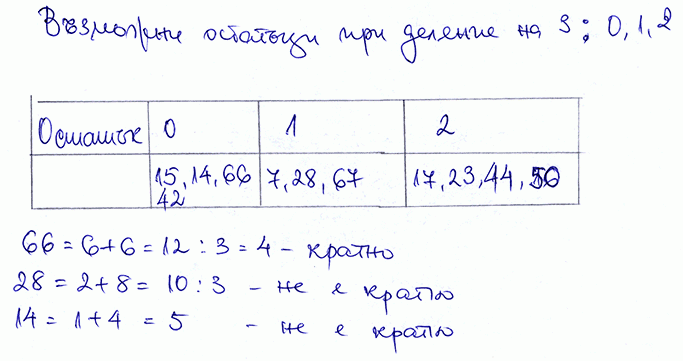 Възможни остатъци при деление на 3: 0, 1, 2
Остатък 0 1 2
15, 14, 66 7, 28, 67 17, 23, 44, 50
42
66 = 6+6 = 12 : 3 = 4 – кратно
28 = 2+8 = 10 : 3 – не е кратно
14 = 1+4 = 5 – не е кратно